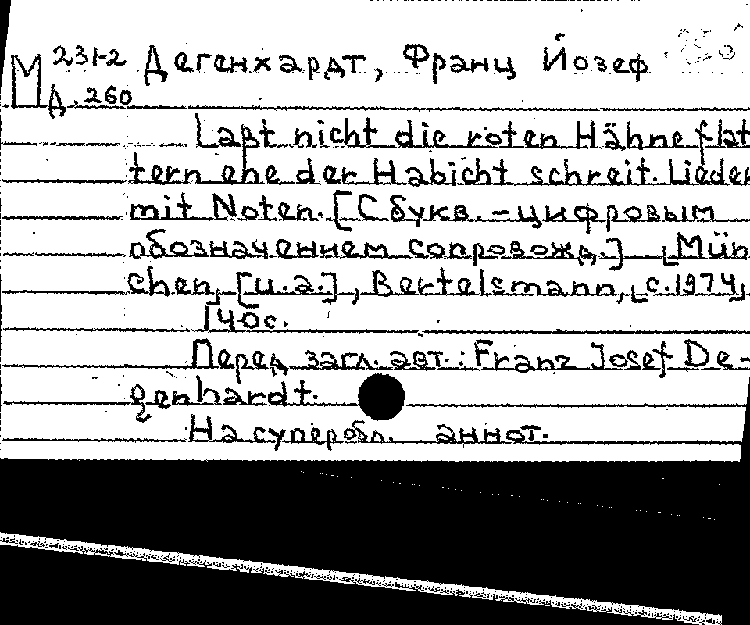 М 231-2 Дегенхардт, Франц Йозеф
Д. 260
Laßt nicht die roten Hähne flat
tern ehe der Habicht schreit. Lieder
mit Noten. [С букв.-цифровым
обозначением сопровожд.] [Mün
chen, [u.a.], Bertelsmann, [c.1974]
140с.
Перед загл. авт.: Franz Josef De-
genhardt.
На суперобл. аннот.